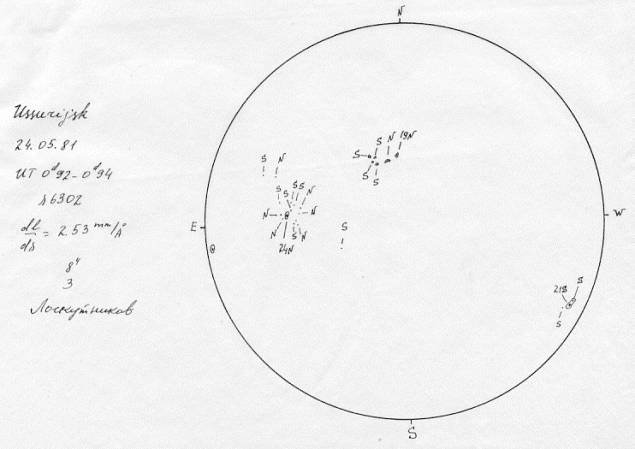 Ussurijsk
24.05.81
UT 0ᵈ92–0ᵈ94
λ 6302
dl/dλ = 2.53 mm/Å
8"
3
Лоскутников
N
S N 19N
S
S
S
S N
S S S N
N N
N S N
24N
S
E
W
21S S
S
S